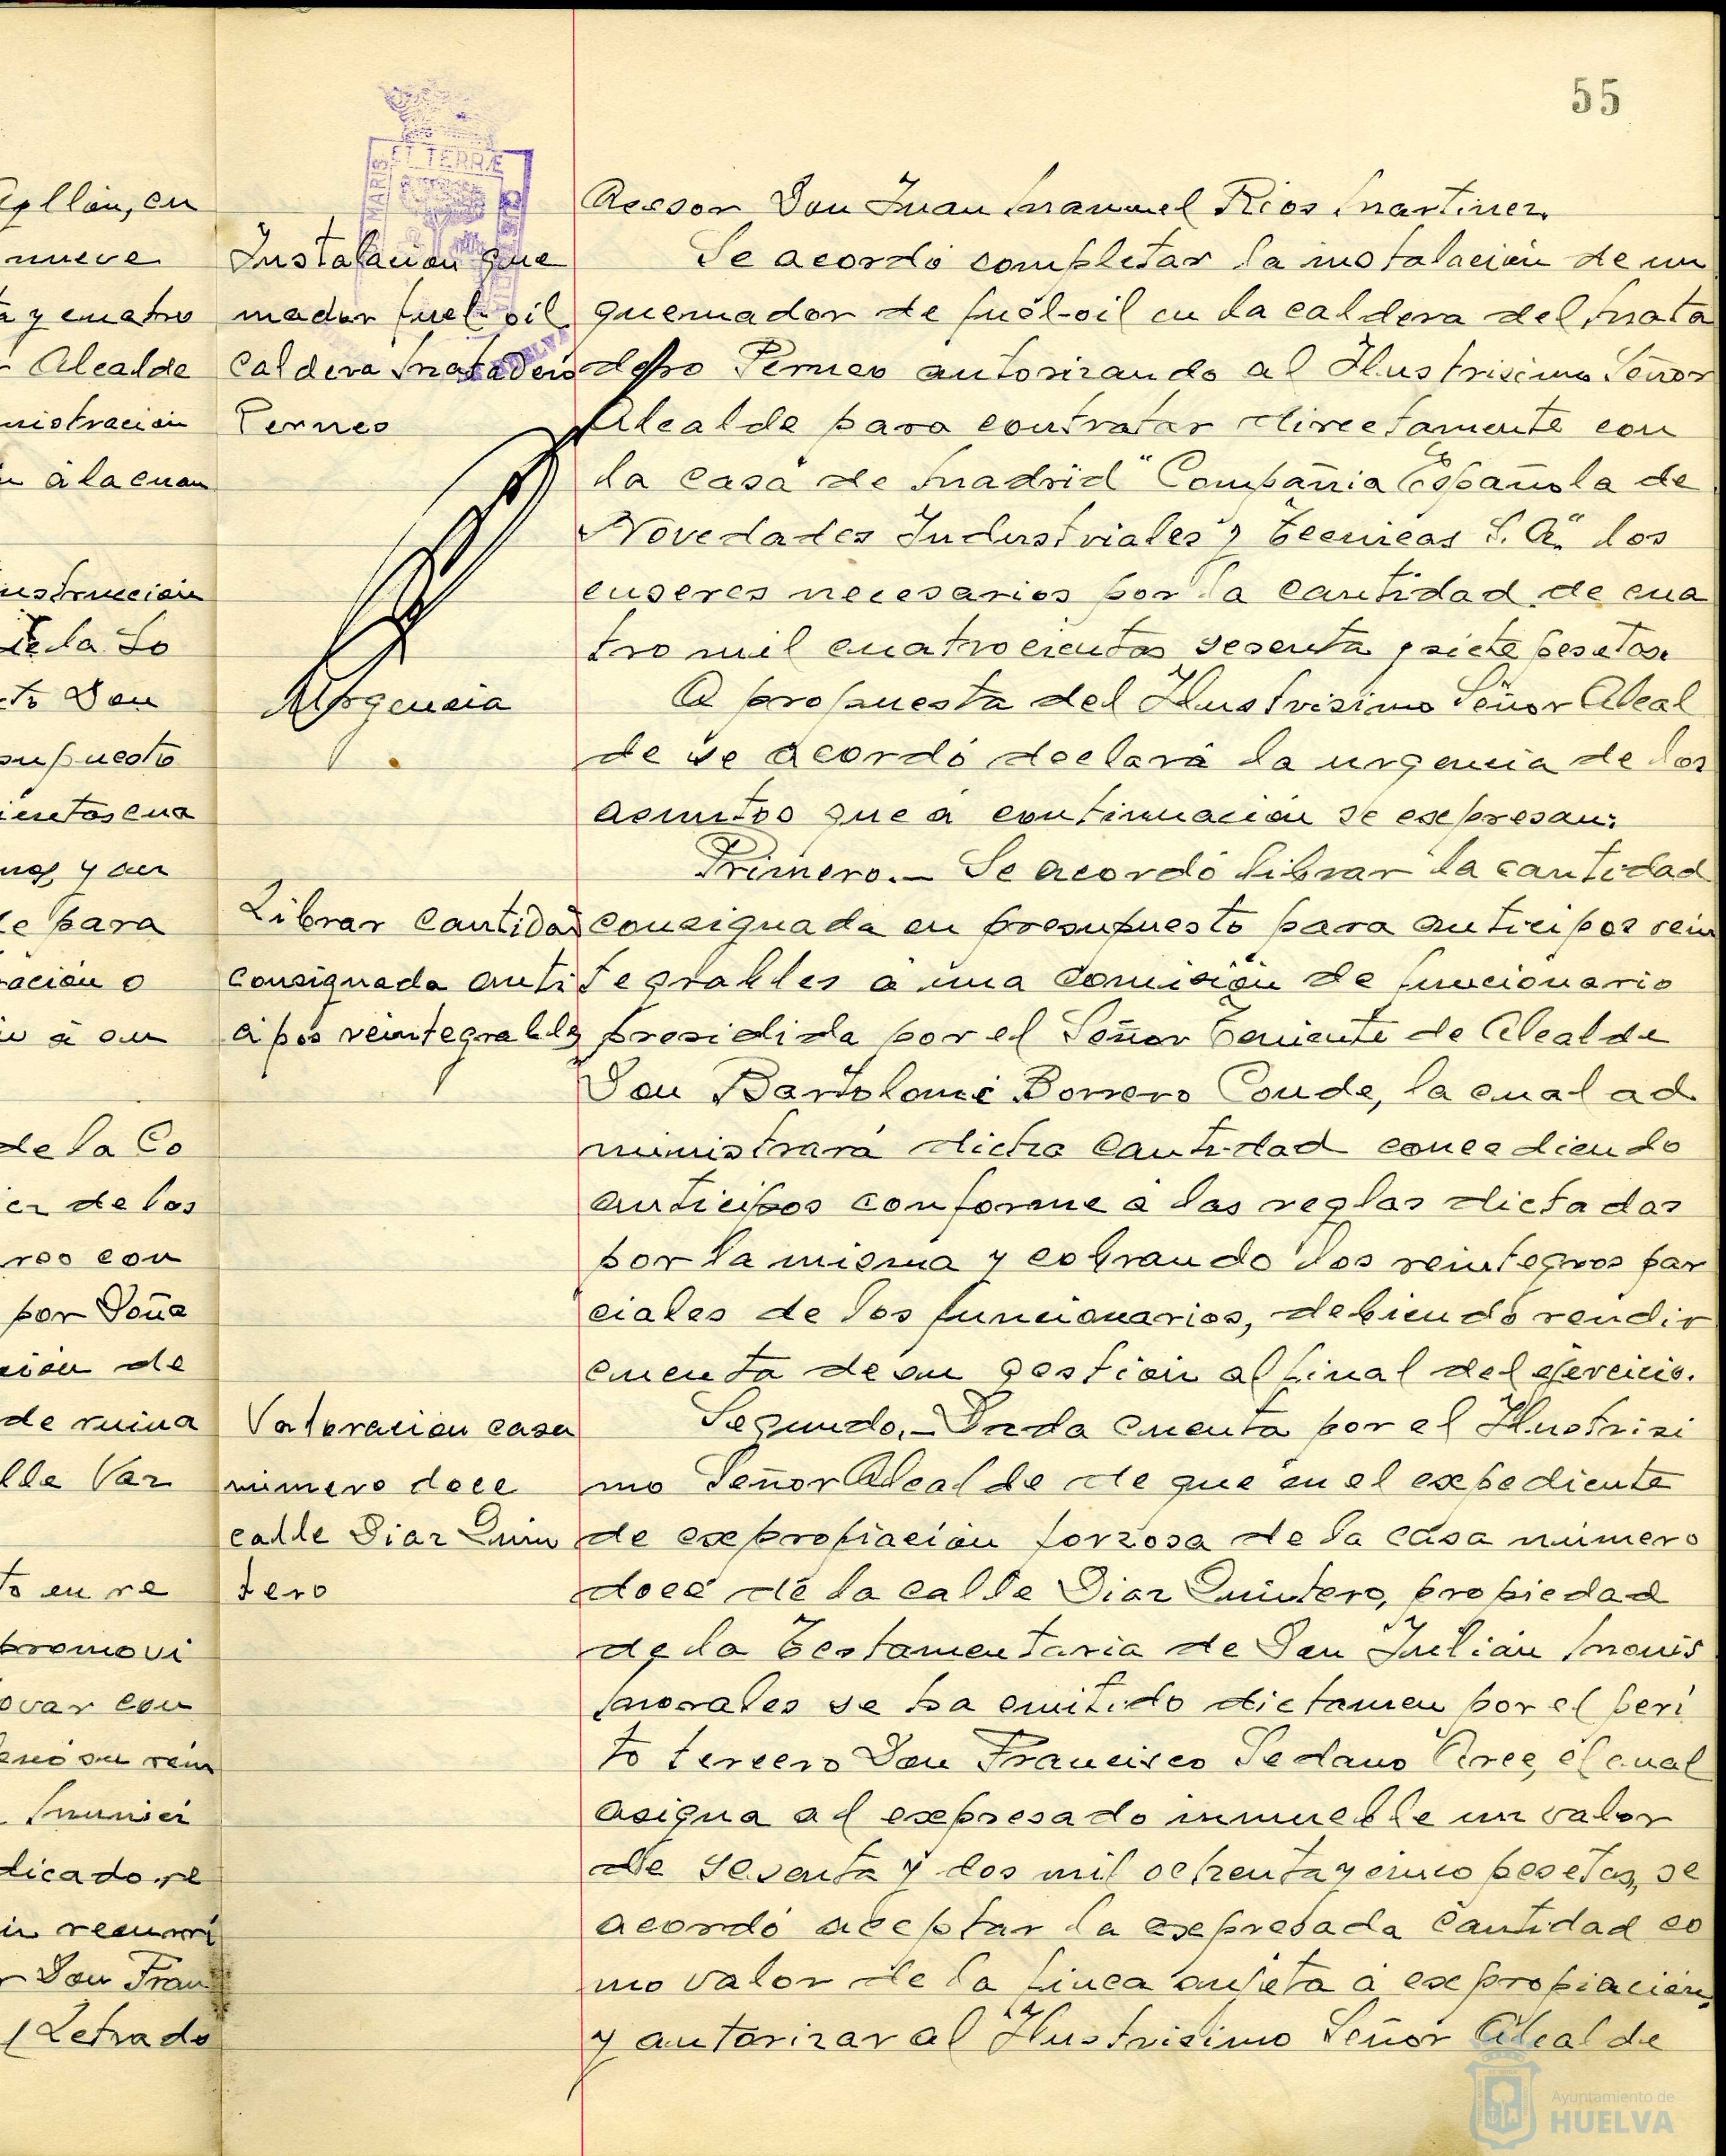 55
ET TERRÆ
MARIS
Asesor Don Juan Manuel Rios Martinez.
Se acordó completar la instalación de un
quemador de fuel-oil en la caldera del Mata
dero Perneo autorizando al Ilustrisimo Señor
Alcalde para contratar directamente con
la casa de Madrid "Compañia Española de
Novedades Industriales y Tecnicas S.A." los
enseres necesarios por la cantidad de cua
tro mil cuatrocientas sesenta y siete pesetas.
A propuesta del Ilustrisimo Señor Alcal
de se acordó declará la urgencia de los
asuntos que á continuación se expresan:
Primero.- Se acordó librar la cantidad
consignada en presupuesto para anticipos rein
tegrables á una comisión de funcionario
presidida por el Señor Teniente de Alcalde
Don Bartolomé Borrero Conde, la cual ad
ministrará dicha cantidad concediendo
anticipos conforme á las reglas dictadas
por la misma y cobrando los reintegros par
ciales de los funcionarios, debiendo rendir
cuenta de su gestión al final del ejercicio.
Segundo.- Dada cuenta por el Ilustrisi
mo Señor Alcalde de que en el expediente
de expropiación forzosa de la casa número
doce de la calle Diaz Quintero, propiedad
de la Testamentaria de Don Julián Monis
Morales se ha emitido dictamen por el peri
to tercero Don Francisco Sedano Arce, el cual
asigna al expresado inmueble un valor
de sesenta y dos mil ochenta y cinco pesetas, se
acordó aceptar la expresada cantidad co
mo valor de la finca sujeta á expropiación,
y autorizar al Ilustrisimo Señor Alcalde
Instalación que
mador fuel-oil
caldera Matadero
Perneo
Urgencia
Librar cantidad
consignada anti
cipos reintegrables
Valoración casa
número doce
calle Diaz Quin
tero
Ayllón, en
nueve
y cuatro
Alcalde
nistración
á la cuan
nstrucción
de la So
Don
supuesto
ientas cua
y un
para
ración o
á su
de la Co
de los
con
por Doña
ción de
de ruina
lle Vaz
to en re
promovi
ovar con
su rein
Munici
dicado, re
recurri
Don Fran
Letrado
Ayuntamiento de
HUELVA